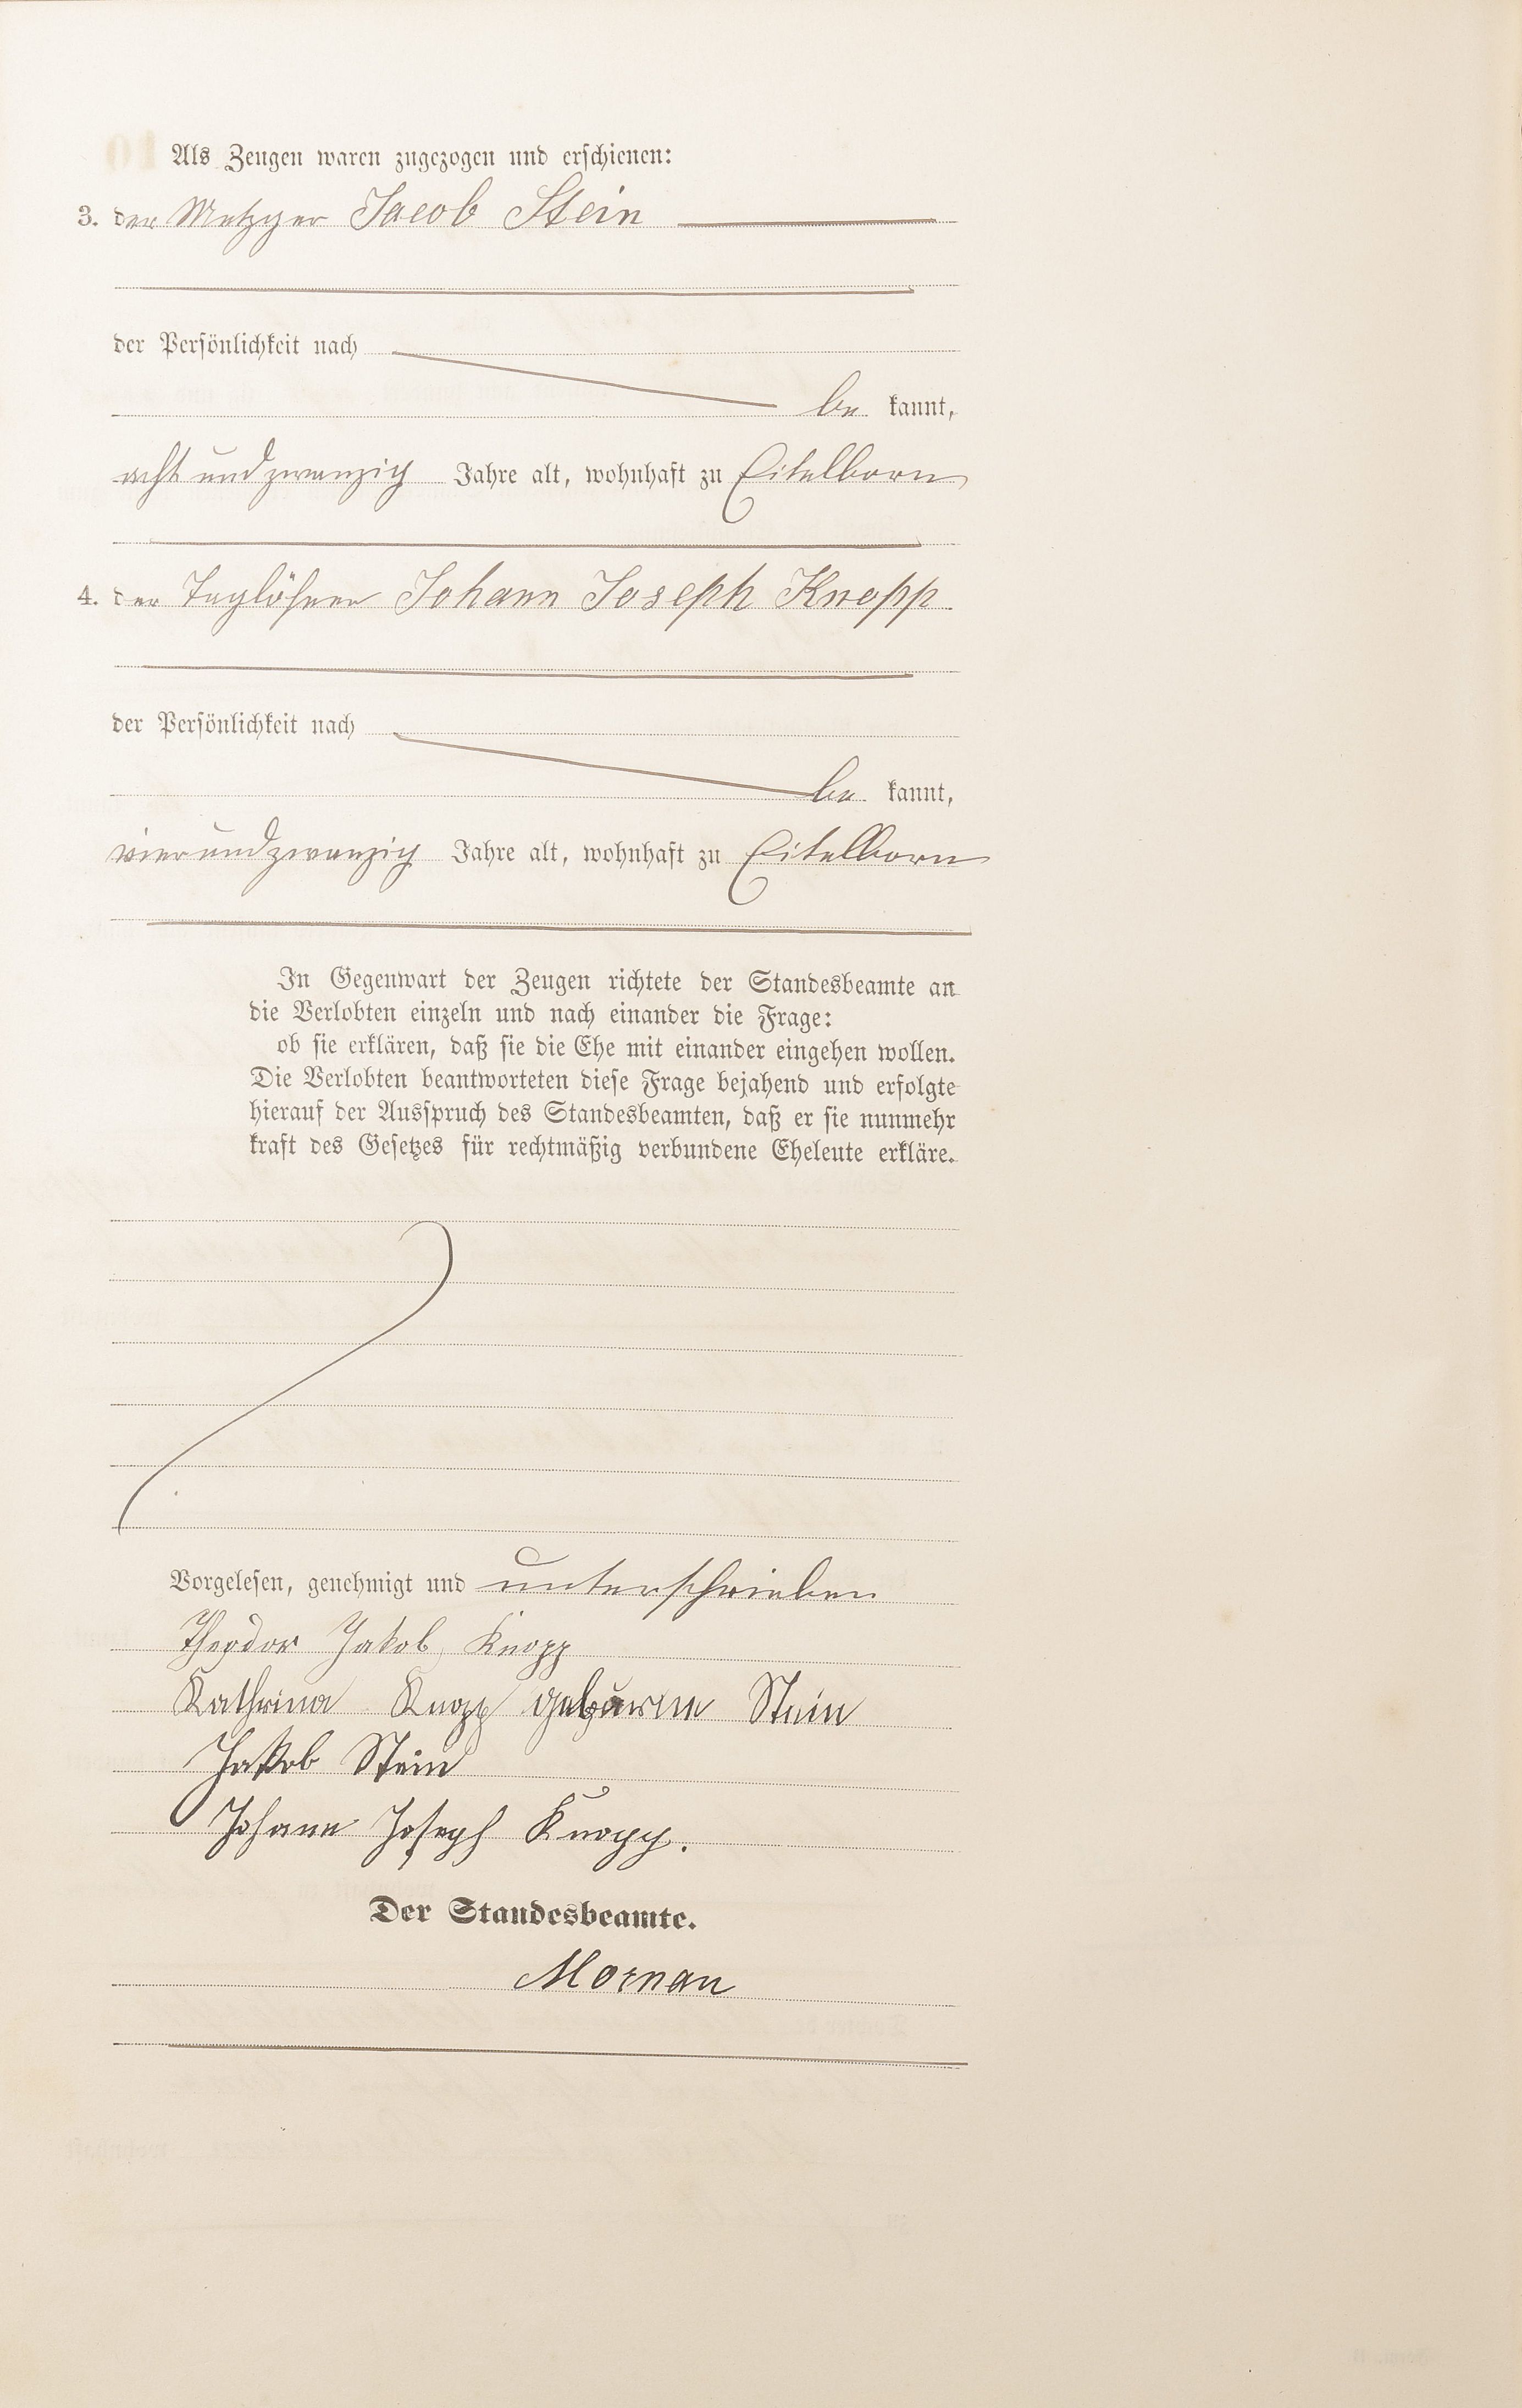 Als Zeugen waren zugezogen und erschienen:
3. der Metzger Jacob Stein
der Persönlichkeit nach
be kannt,
acht und zwanzig Jahre alt, wohnhaft zu Eitelborn
4. der Taglöhner Johann Joseph Knopp
der Persönlichkeit nach
be kannt,
vier und zwanzig Jahre alt, wohnhaft zu Eitelborn
In Gegenwart der Zeugen richtete der Standesbeamte an
die Verlobten einzeln und nach einander die Frage:
ob sie erklären, daß sie die Ehe mit einander eingehen wollen.
Die Verlobten beantworteten diese Frage bejahend und erfolgte
hierauf der Ausspruch des Standesbeamten, daß er sie nunmehr
kraft des Gesetzes für rechtmäßig verbundene Eheleute erkläre.
Vorgelesen, genehmigt und unterschrieben
Theodor Jakob Knopp
Kathrina Knopp geborene Stein
Jakob Stein
Johann Joseph Knopp.
Der Standesbeamte.